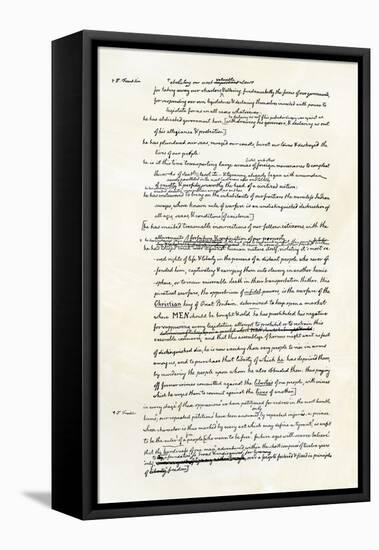 abolishing our most valuable laws
for taking away our charters & altering fundamentally the forms of our governments,
for suspending our own legislatures & declaring themselves invested with power to
legislate for us in all cases whatsoever
he has abdicated government here, [withdrawing his governors, & declaring us out
of his allegiance & protection]
he has plundered our seas, ravaged our coasts, burnt our towns & destroyed the
lives of our people:
he is at this time transporting large armies of foreign mercenaries to compleat
the works of death, & tyranny, already begun with circumstances
of cruelty & perfidy unworthy the head of a civilized nation:
he has endeavored to bring on the inhabitants of our frontiers the merciless Indian
savages, whose known rule of warfare is an undistinguished destruction of
all ages, sexes, & conditions [of existence]
[he has incited treasonable insurrections of our fellow citizens, with the
allurements of forfeiture & confiscation of our property
he has waged cruel war against human nature itself, violating it's most sa-
-cred rights of life & liberty in the persons of a distant people who never of-
fended him, captivating & carrying them into slavery in another hemi-
sphere, or to incur miserable death in their transportation thither. this
piratical warfare, the opprobrium of infidel powers, is the warfare of the
Christian king of Great Britain. determined to keep open a market
where MEN should be bought & sold, he has prostituted his negative
for suppressing every legislative attempt to prohibit or to restrain this
execrable commerce, and that this assemblage of horrors might want no fact
of distinguished die, he is now exciting those very people to rise in arms
among us, and to purchase that liberty of which he has deprived them,
by murdering the people upon whom he also obtruded them: thus paying
off former crimes committed against the liberties of one people, with crimes
which he urges them to commit against the lives of another.]
in every stage of these oppressions we have petitioned for redress in the most humble
terms; our repeated petitions have been answered only by repeated injuries. a prince
whose character is thus marked by every act which may define a tyrant, is unfit
to be the ruler of a people [who mean to be free. future ages will scarce believe
that the hardiness of one man, adventured within the short compass of twelve years
only over a people fostered & fixed in principles
of freedom]